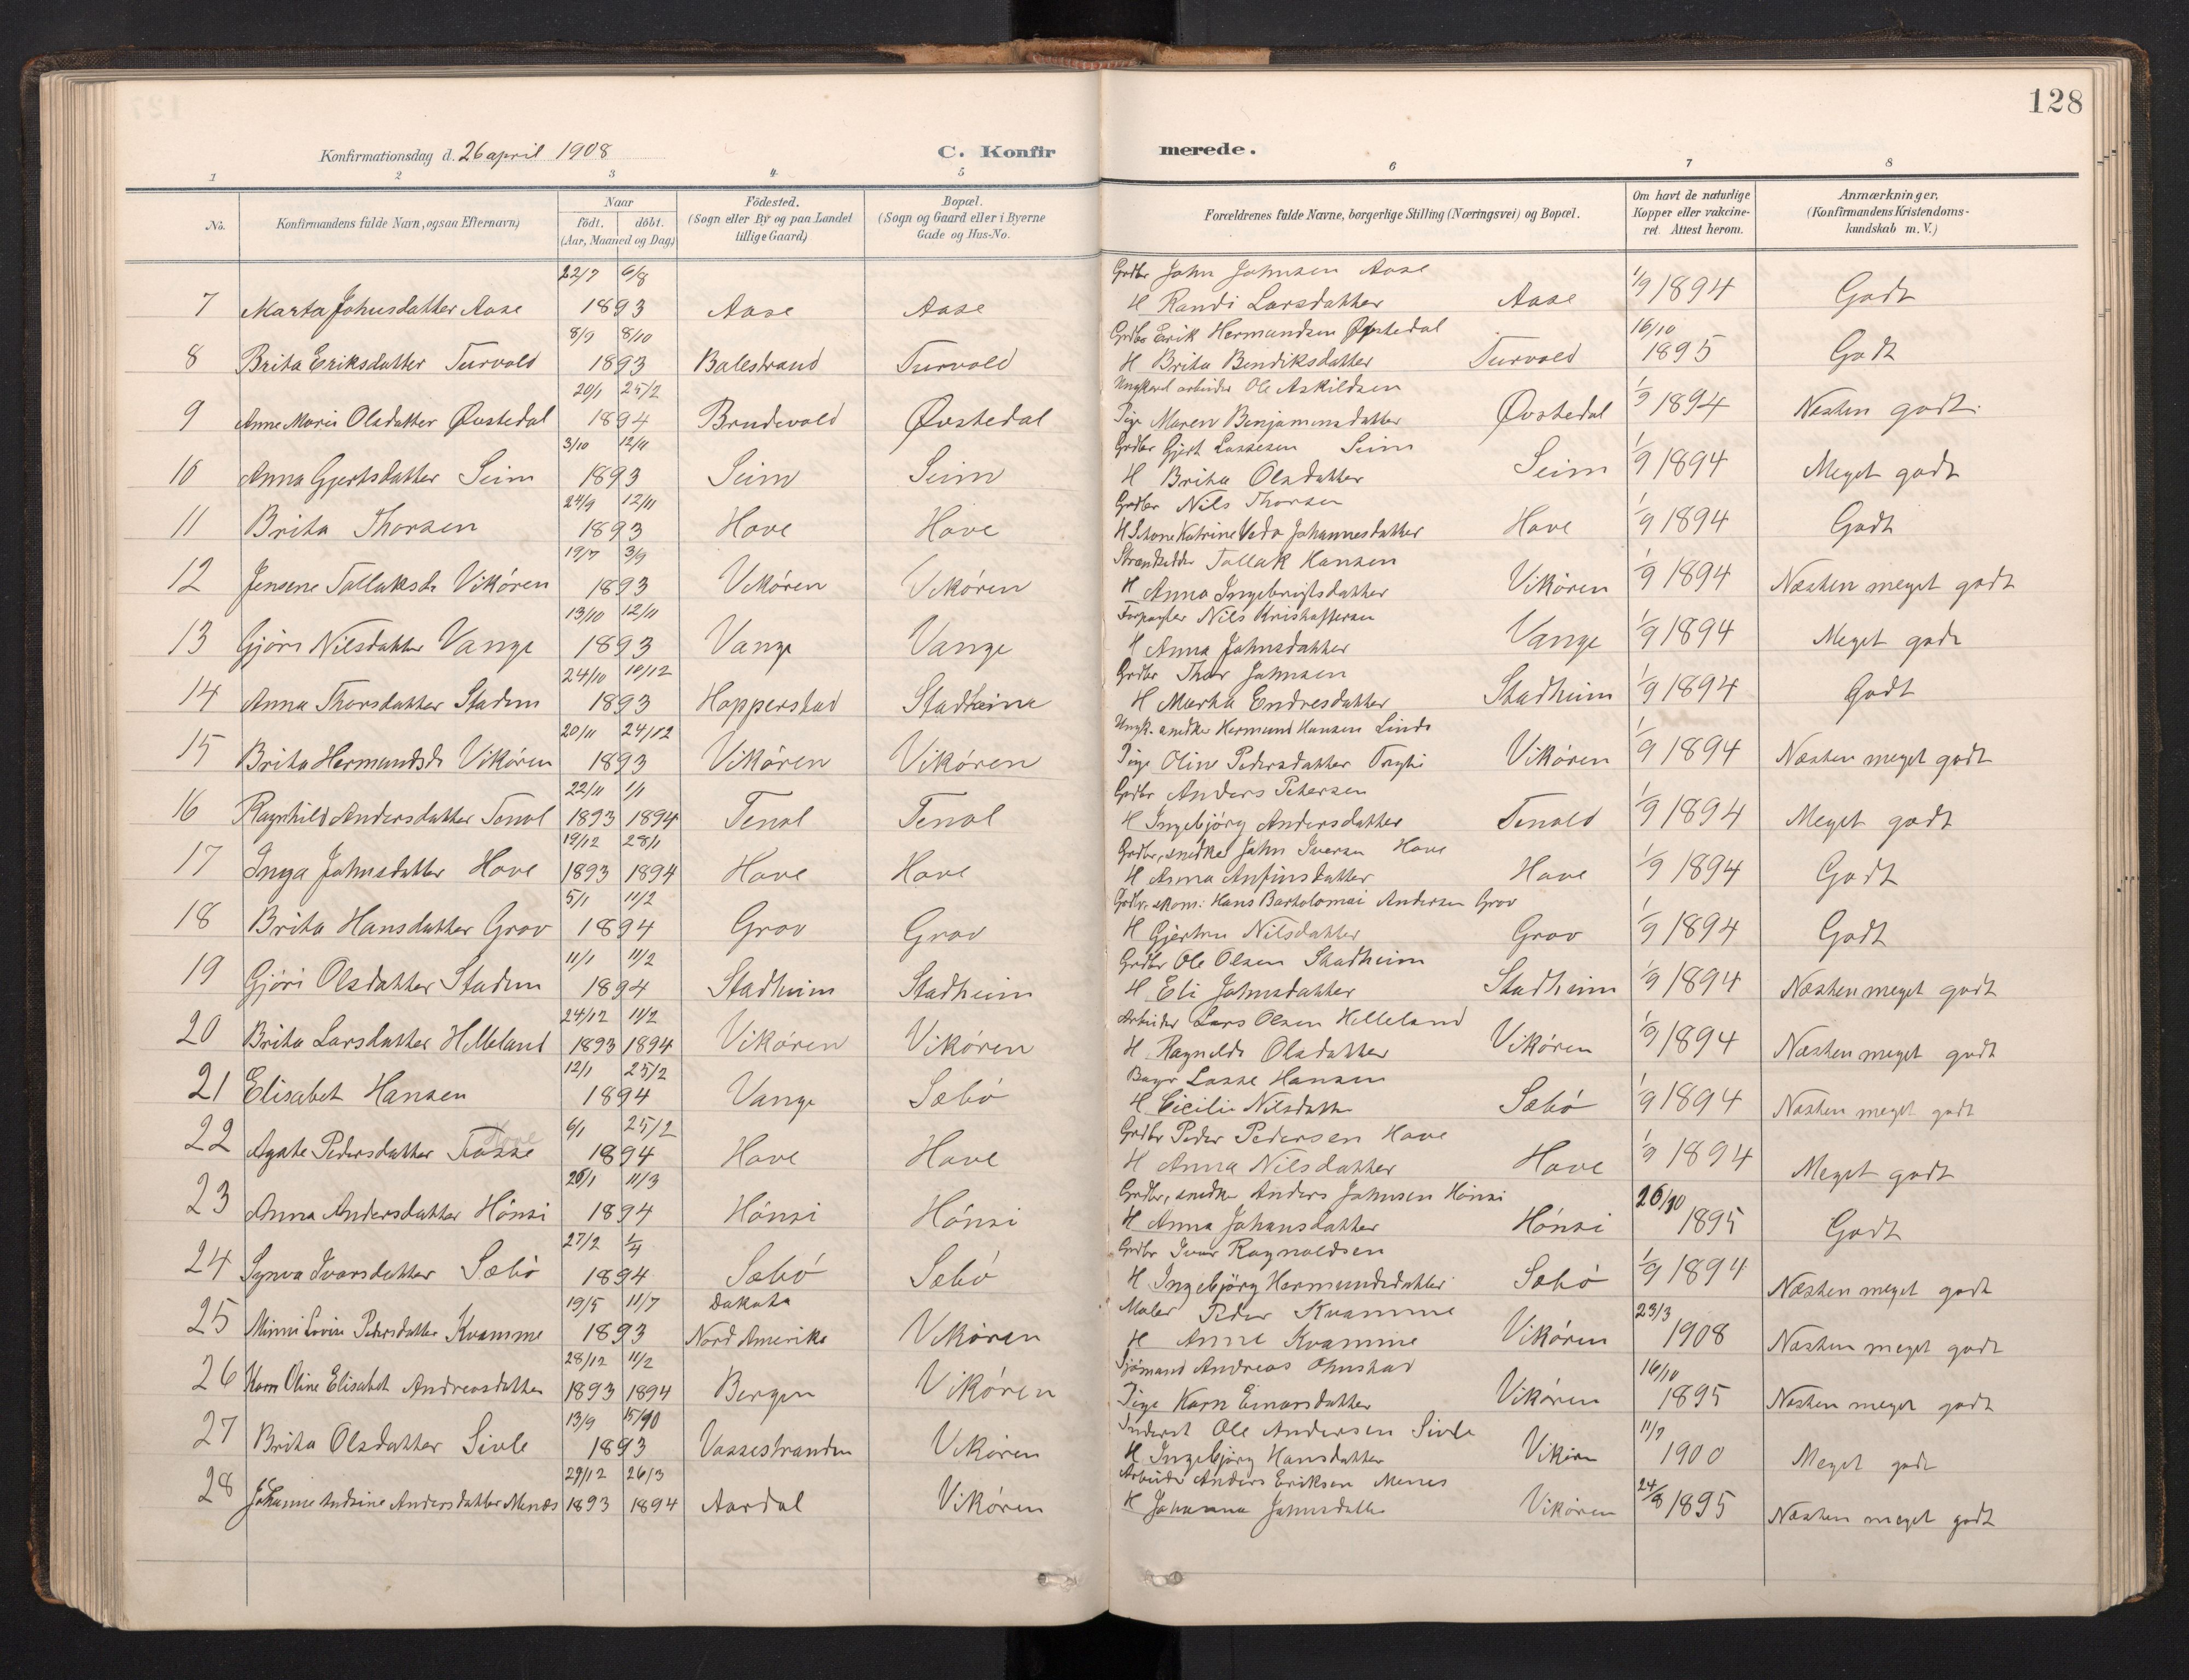 128
Konfirmationsdag d. 26 april 1908
C. Konfirmerede.
1 2 3 4 5 6 7 8
No.
Konfirmandens fulde Navn, ogsaa Efternavn)
Naar
födt. döbt.
(Aar, Maaned og Dag)
Födested.
(Sogn eller By og paa Landet
tillige Gaard)
Bopæl.
(Sogn og Gaard eller i Byerne
Gade og Hus-No.
Forældrenes fulde Navne, borgerlige Stilling (Næringsvei) og Bopæl.
Om havt de naturlige
Kopper eller vakcine-
ret. Attest herom.
Anmærkninger.
(Konfirmandens Kristendoms-
kundskab m. V.)
22/7 6/8 Grdbr John Johnsen Aase
7 Marta Johnsdatter Aase 1893 Aase Aase H Randi Larsdatter Aase 1/9 1894 Godt
8/9 8/10 Grdbr Erik Hermundsen Øvstedal 16/10
8 Brita Eriksdatter Turvold 1893 Balestrand Turvold H Brita Bendiksdatter Turvold 1895 Godt
20/1 25/2 Ungkarl arbeider Ole Askildsen
9 Anne Marie Olsdatter Øvstedal 1894 Brudevold Øvstedal Pige Maren Benjaminsdatter Øvstedal 1/9 1894 Næsten godt
3/10 12/11 Grdbr Gjert Lassesen Seim
10 Anna Gjertsdatter Seim 1893 Seim Seim H Brita Olsdatter Seim 1/9 1894 Meget godt
24/9 12/11 Grdbr Nils Thorsen
11 Brita Thorsen 1893 Hove Hove Katrine Johannesdatter Hove 1/9 1894 Godt
19/7 3/9 Strandsidder Tollak Hansen
12 Jensene Tollaksdr Vikören 1893 Vikören Vikören H Anna Ingebrigtsdatter Vikören 1/9 1894 Næsten meget godt
13/10 12/11 Forpagter Nils Kristoffersen
13 Gjöri Nilsdatter Vange 1893 Vange Vange H Anna Johnsdatter Vange 1/9 1894 Meget godt
24/10 10/12 Grdbr Thor Johnsen
14 Anna Thorsdatter Stadem 1893 Hopperstad Stadheim H Marta Endresdatter Stadheim 1/9 1894 Godt
20/11 24/12 Ungk. snedker Hermund Hansen Linde
15 Brita Hermundsdr Vikören 1893 Vikören Vikören Pige Oline Pedersdatter Vikören 1/9 1894 Næsten meget godt
22/11 1/1 Grdbr Anders Petersen
16 Ragnhild Andersdatter Tenol 1893 1894 Tenol Tenol H Ingebjörg Andersdatter Tenold 1/9 1894 Meget godt
19/12 28/1 Grdbr, snedker John Iversen Hove
17 Inga Johnsdatter Hove 1893 1894 Hove Hove H Anna Anfinsdatter Hove 1/9 1894 Godt
5/1 11/2 Hans Bartolomai Andersen Grov
18 Brita Hansdatter Grov 1894 Grov Grov H Gjertru Nilsdatter Grov 1/9 1894 Godt
11/1 11/2 Grdbr Ole Olsen Stadheim
19 Gjöri Olsdatter Stadem 1894 Stadheim Stadheim H Eli Johnsdatter Stadheim 1/9 1894 Næsten meget godt
24/12 11/2 Arbeider Lars Olsen Helleland
20 Brita Larsdatter Helleland 1893 1894 Vikören Vikören H Ragnilda Olsdatter Vikören 1/9 1894 Næsten meget godt
12/1 25/2 Lasse Hansen
21 Elisabet Hansen 1894 Vange Sæbö H Cicilie Nilsdatter Sæbö 1/9 1894 Næsten meget godt
6/1 25/2 Grdbr Peder Pedersen Hove
22 Agate Pedersdatter 1894 Hove Hove H Anna Nilsdatter Hove 1/9 1894 Meget godt
26/1 11/3 Grdbr, snedker Anders Johnsen Hönsi 26/10
23 Anna Andersdatter Hönsi 1894 Hönsi Hönsi H Anna Johansdatter Hönsi 1895 Godt
27/2 1/4 Grdbr Ivar Ragnvaldsen
24 Synva Ivarsdatter Sæbö 1894 Sæbö Sæbö H Ingebjörg Hermundsdatter Sæbö 1/9 1894 Næsten meget godt
19/5 11/7 Dakota Maler Peder Kvamme 23/3
25 Minni Lovise Pedersdatter Kvamme 1893 Nord Amerika Vikören H Anne Kvamme Vikören 1908 Næsten meget godt
28/12 11/2 Sjömand Andreas Ohnstad 16/10
26 Karn Oline Elisabet Andreasdatter 1893 1894 Bergen Vikören Pige Karn Einarsdatter Vikören 1895 Næsten meget godt
13/9 15/10 Inderst Ole Andersen Sivle 11/7
27 Brita Olsdatter Sivle 1893 Vossestranden Vikören H Ingebjörg Hansdatter Vikören 1900 Meget godt
29/12 26/3 Arbeider Anders Eriksen Menes
28 Johanne Andrine Andersdatter Menæs 1893 1894 Aardal Vikören H Johanna Johnsdatter Vikören 24/8 1895 Næsten meget godt